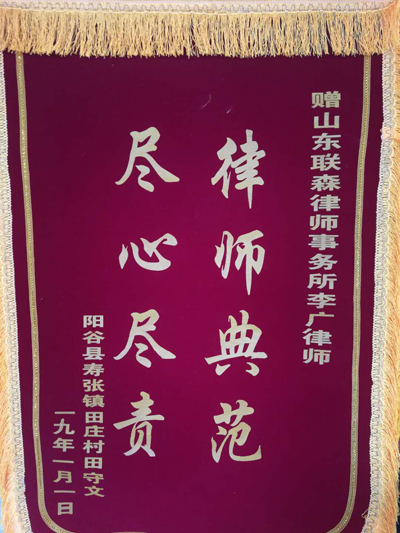 赠山东联森律师事务所李广律师
律师典范
尽心尽责
阳谷县寿张镇田庄村田守文
一九年一月一日